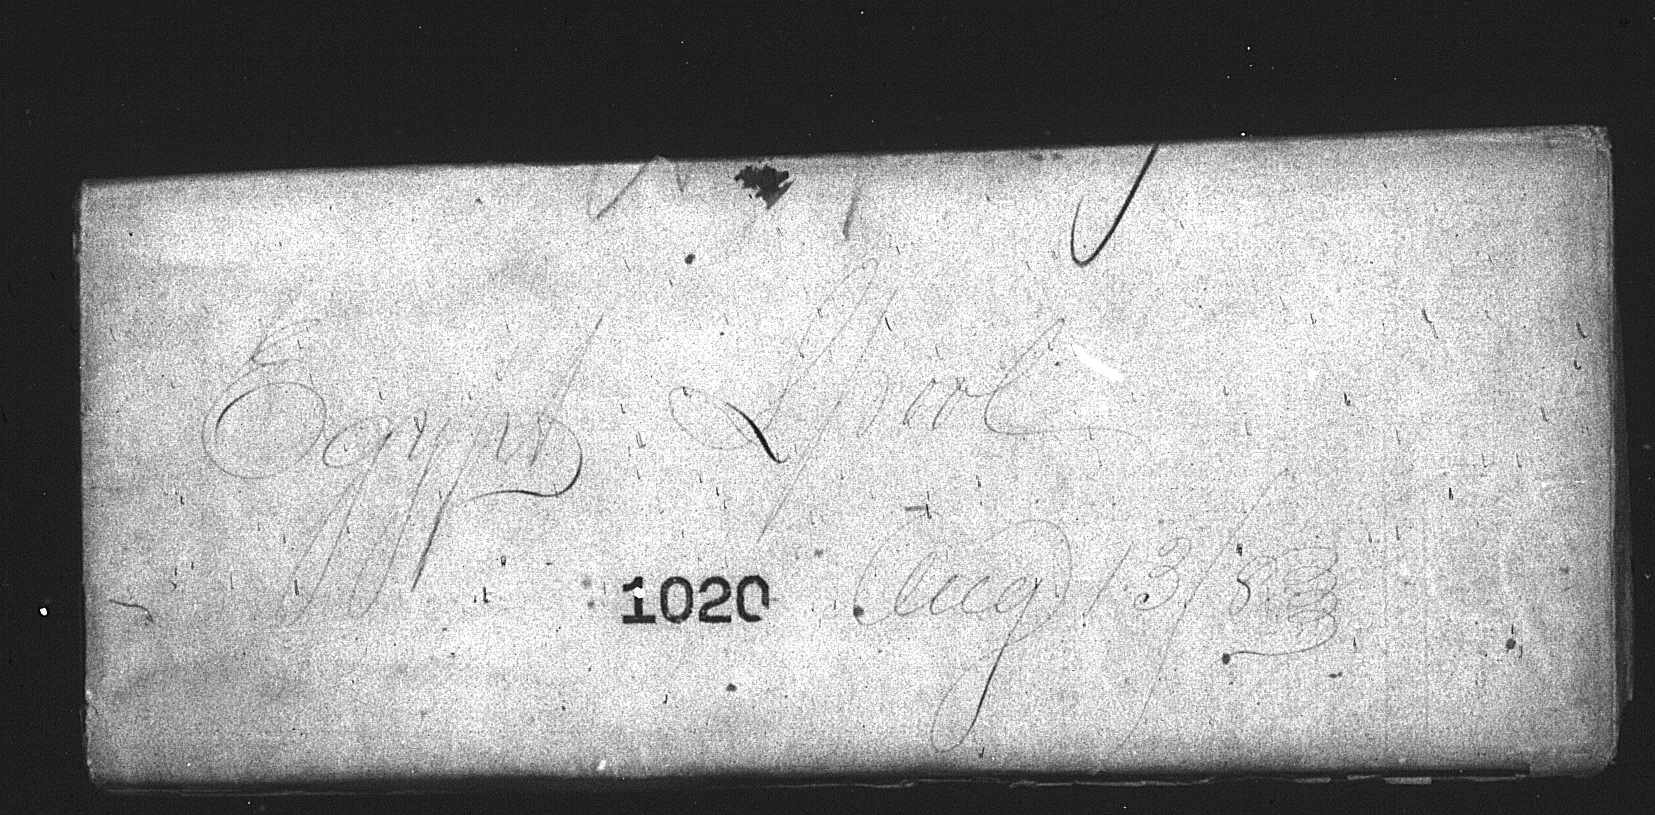 Egypt Lpool
Aug 13/83
1020